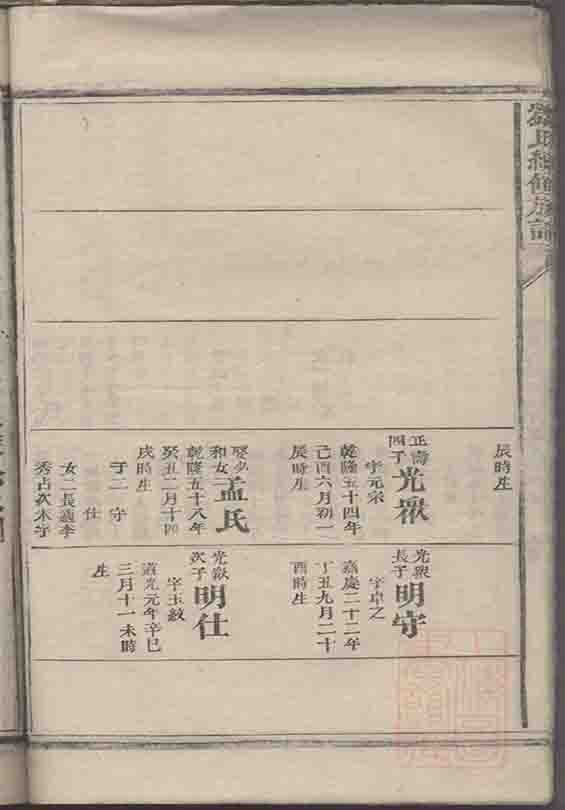 劉氏續修族譜
辰時生
正壽
四子
光嶽
字元宗
乾隆五十四年
己酉六月初一
辰時生
娶少
和女
孟氏
乾隆五十八年
癸丑二月十四
戌時生
子二 守
仕
女二長適李
秀占次未字
光嶽
長子
明守
字卓之
嘉慶二十二年
丁丑九月二十
酉時生
光嶽
次子
明仕
字玉紋
道光元年辛巳
三月十一未時
生